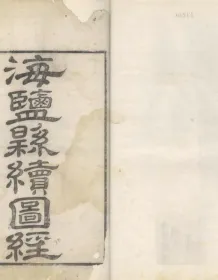 海鹽縣續圖經